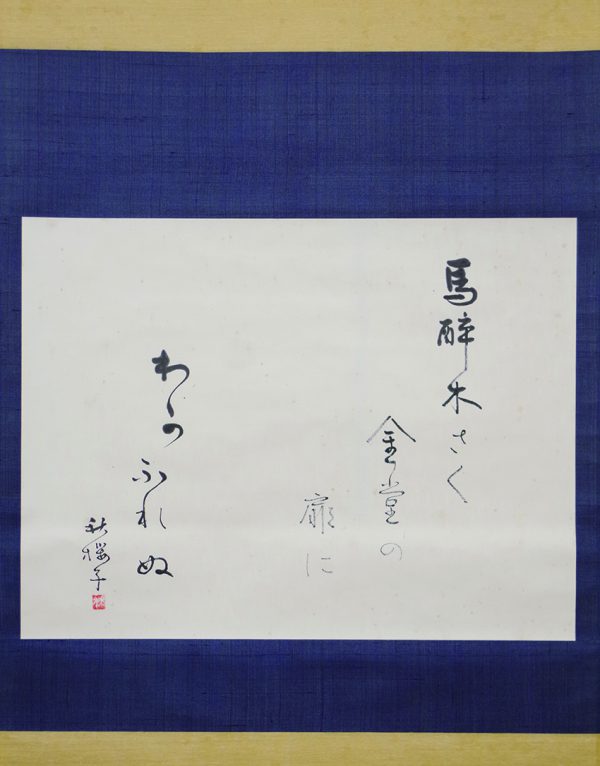 馬醉木さく
金堂の
扉に
わか
ふれぬ
秋櫻子